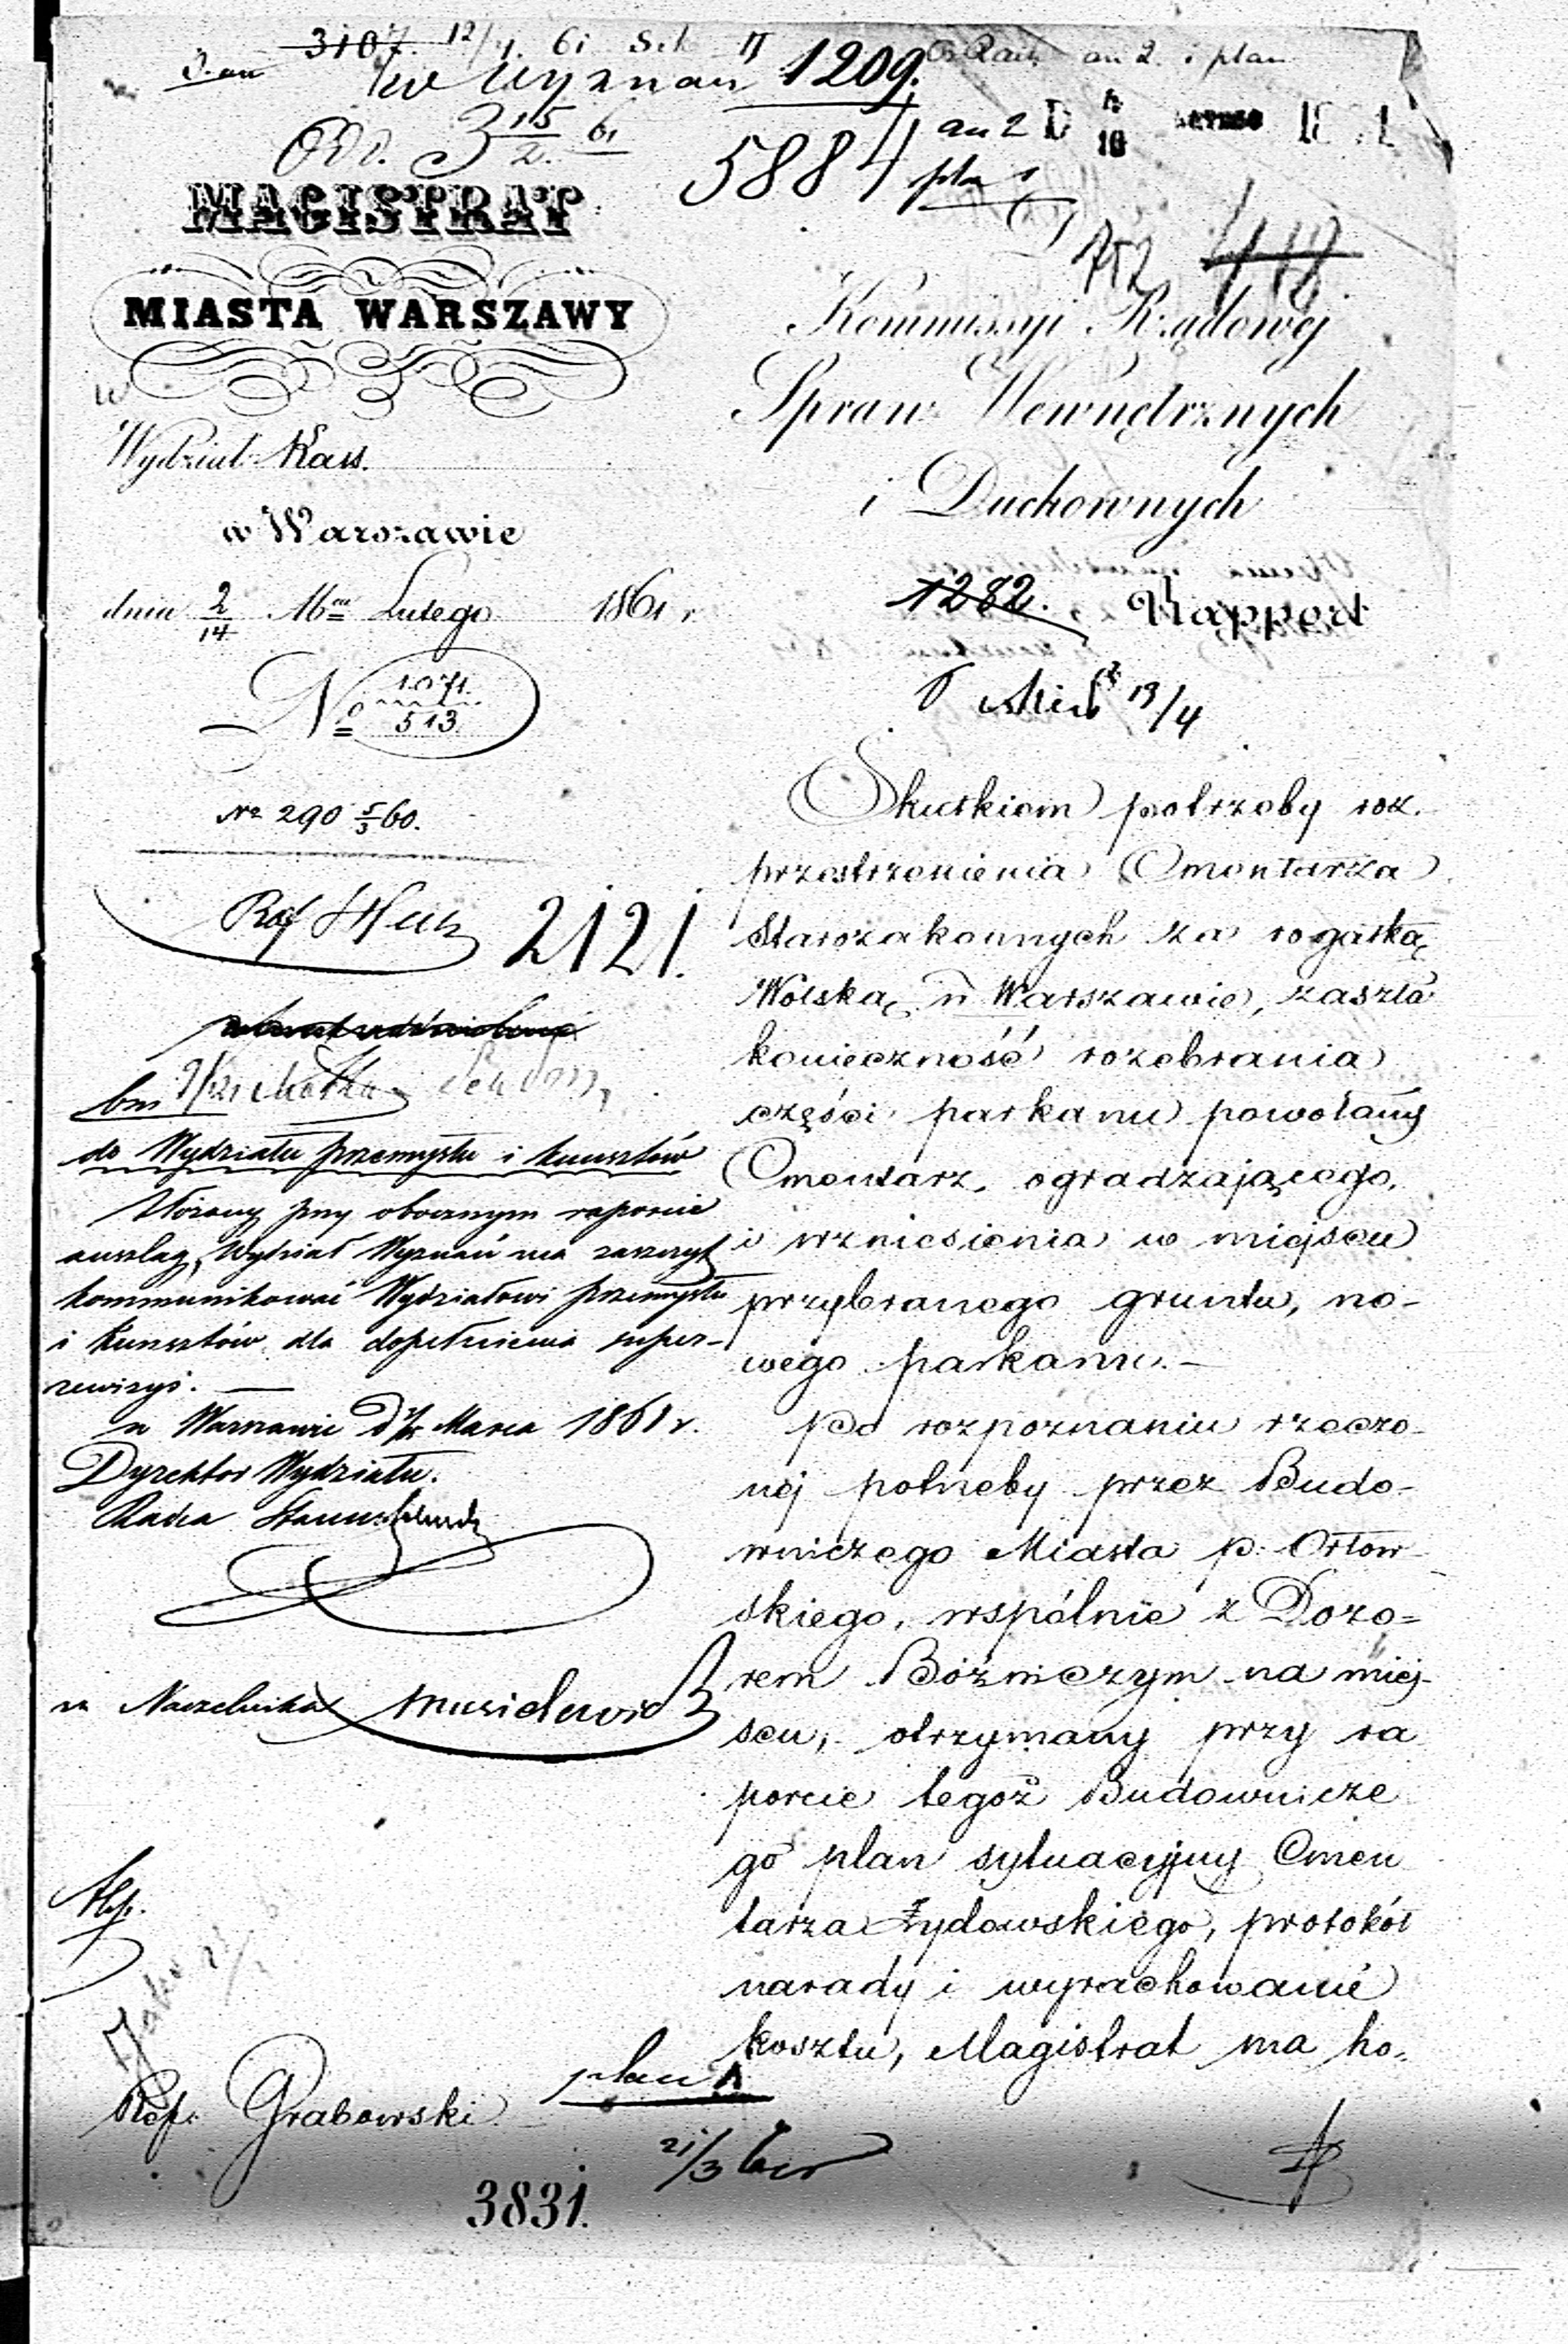 3107. 12/4. 61
w Wyznań 1209.
an 2. i plan
3 15/2. 61
5884 an 2
plan 1
MAGISTRAT
MIASTA WARSZAWY
Wydział Kass.
w Warszawie
dnia 2/14 Lutego 1861 r.
No 1071. 513.
No 290 5/3 60.
2121.
do Wydziału przemysłu i kunsztów
Złożony przy obocznym raporcie
anszlag, Wydział Wyznań ma zaszczyt
kommunikować Wydziałowi przemysłu
i kunsztów dla dopełnienia super-
rewizyi. —
w Warszawie d. Marca 1861 r.
Dyrektor Wydziału.
Radca Stanu
za Naczelnika
Ref. Grabowski
plan 1
21/3
3831.
Kommissyi Rządowej
Spraw Wewnętrznych
i Duchownych
1282. Rapport
13/4
Skutkiem potrzeby roz.
przestrzenienia Cmentarza
Starozakonnych za rogatką
Wolską w Warszawie, zaszła
konieczność rozebrania
części parkanu powołany
Cmentarz, ogradzającego,
i wzniesienia w miejscu
przybranego gruntu, no-
wego parkanu. —
Po rozpoznaniu rzeczo-
nej potrzeby przez Budo-
wniczego Miasta p. Orłow-
skiego, wspólnie z Dozo=
rem Bóżniczym na miej-
scu, otrzymany przy ra
porcie tegoż Budownicze
go plan sytuacyjny Cmen
tarza Żydowskiego, protokół
narady i wyrachowanie
kosztu, Magistrat ma ho-